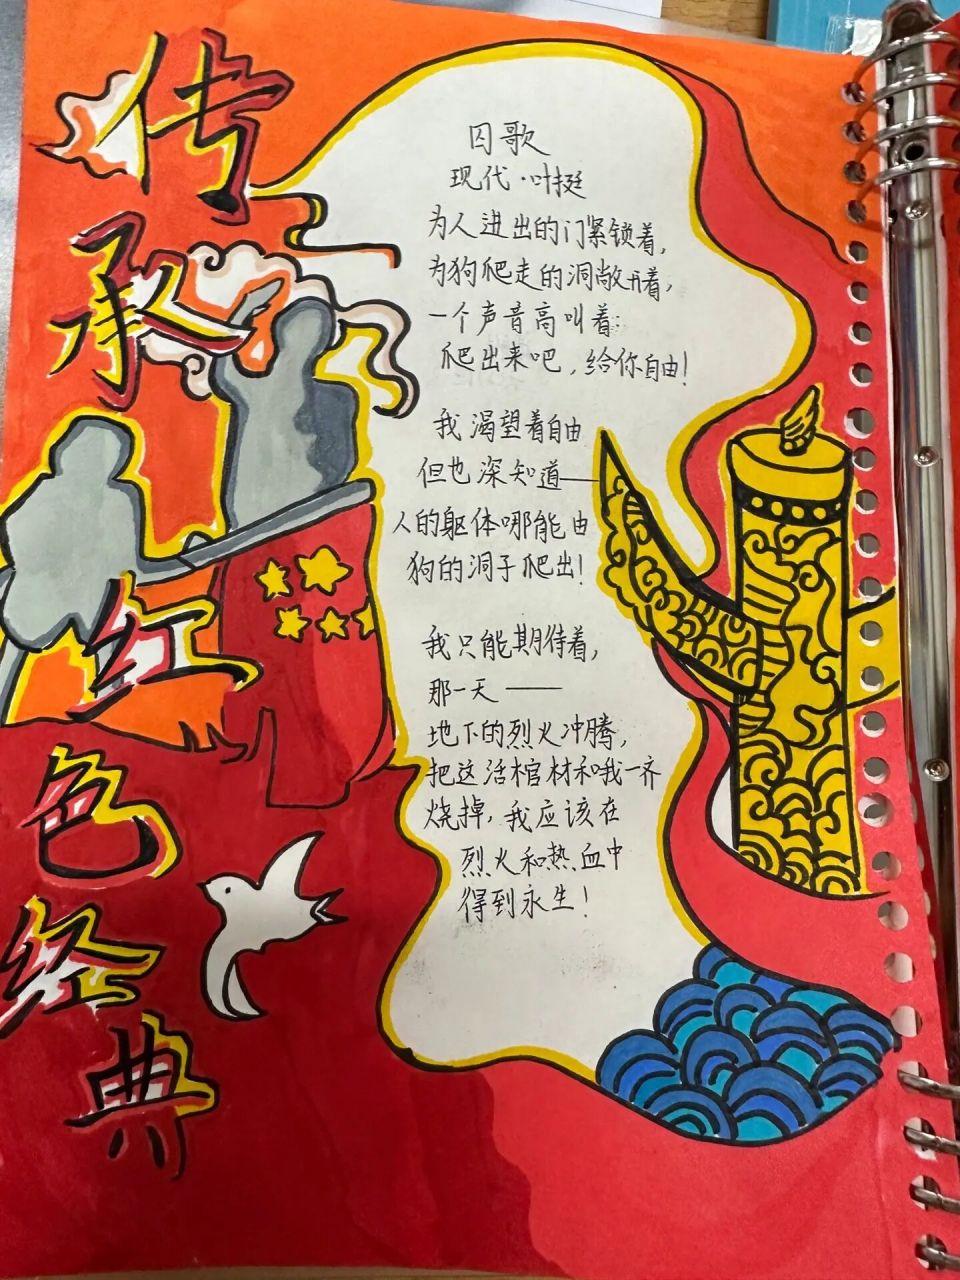 传承红色经典
囚歌
现代·叶挺
为人进出的门紧锁着,
为狗爬走的洞敞开着,
一个声音高叫着:
爬出来吧,给你自由!
我渴望着自由
但也深知道——
人的躯体哪能由
狗的洞子爬出!
我只能期待着,
那一天——
地下的烈火冲腾,
把这活棺材和我一齐
烧掉,我应该在
烈火和热血中
得到永生!